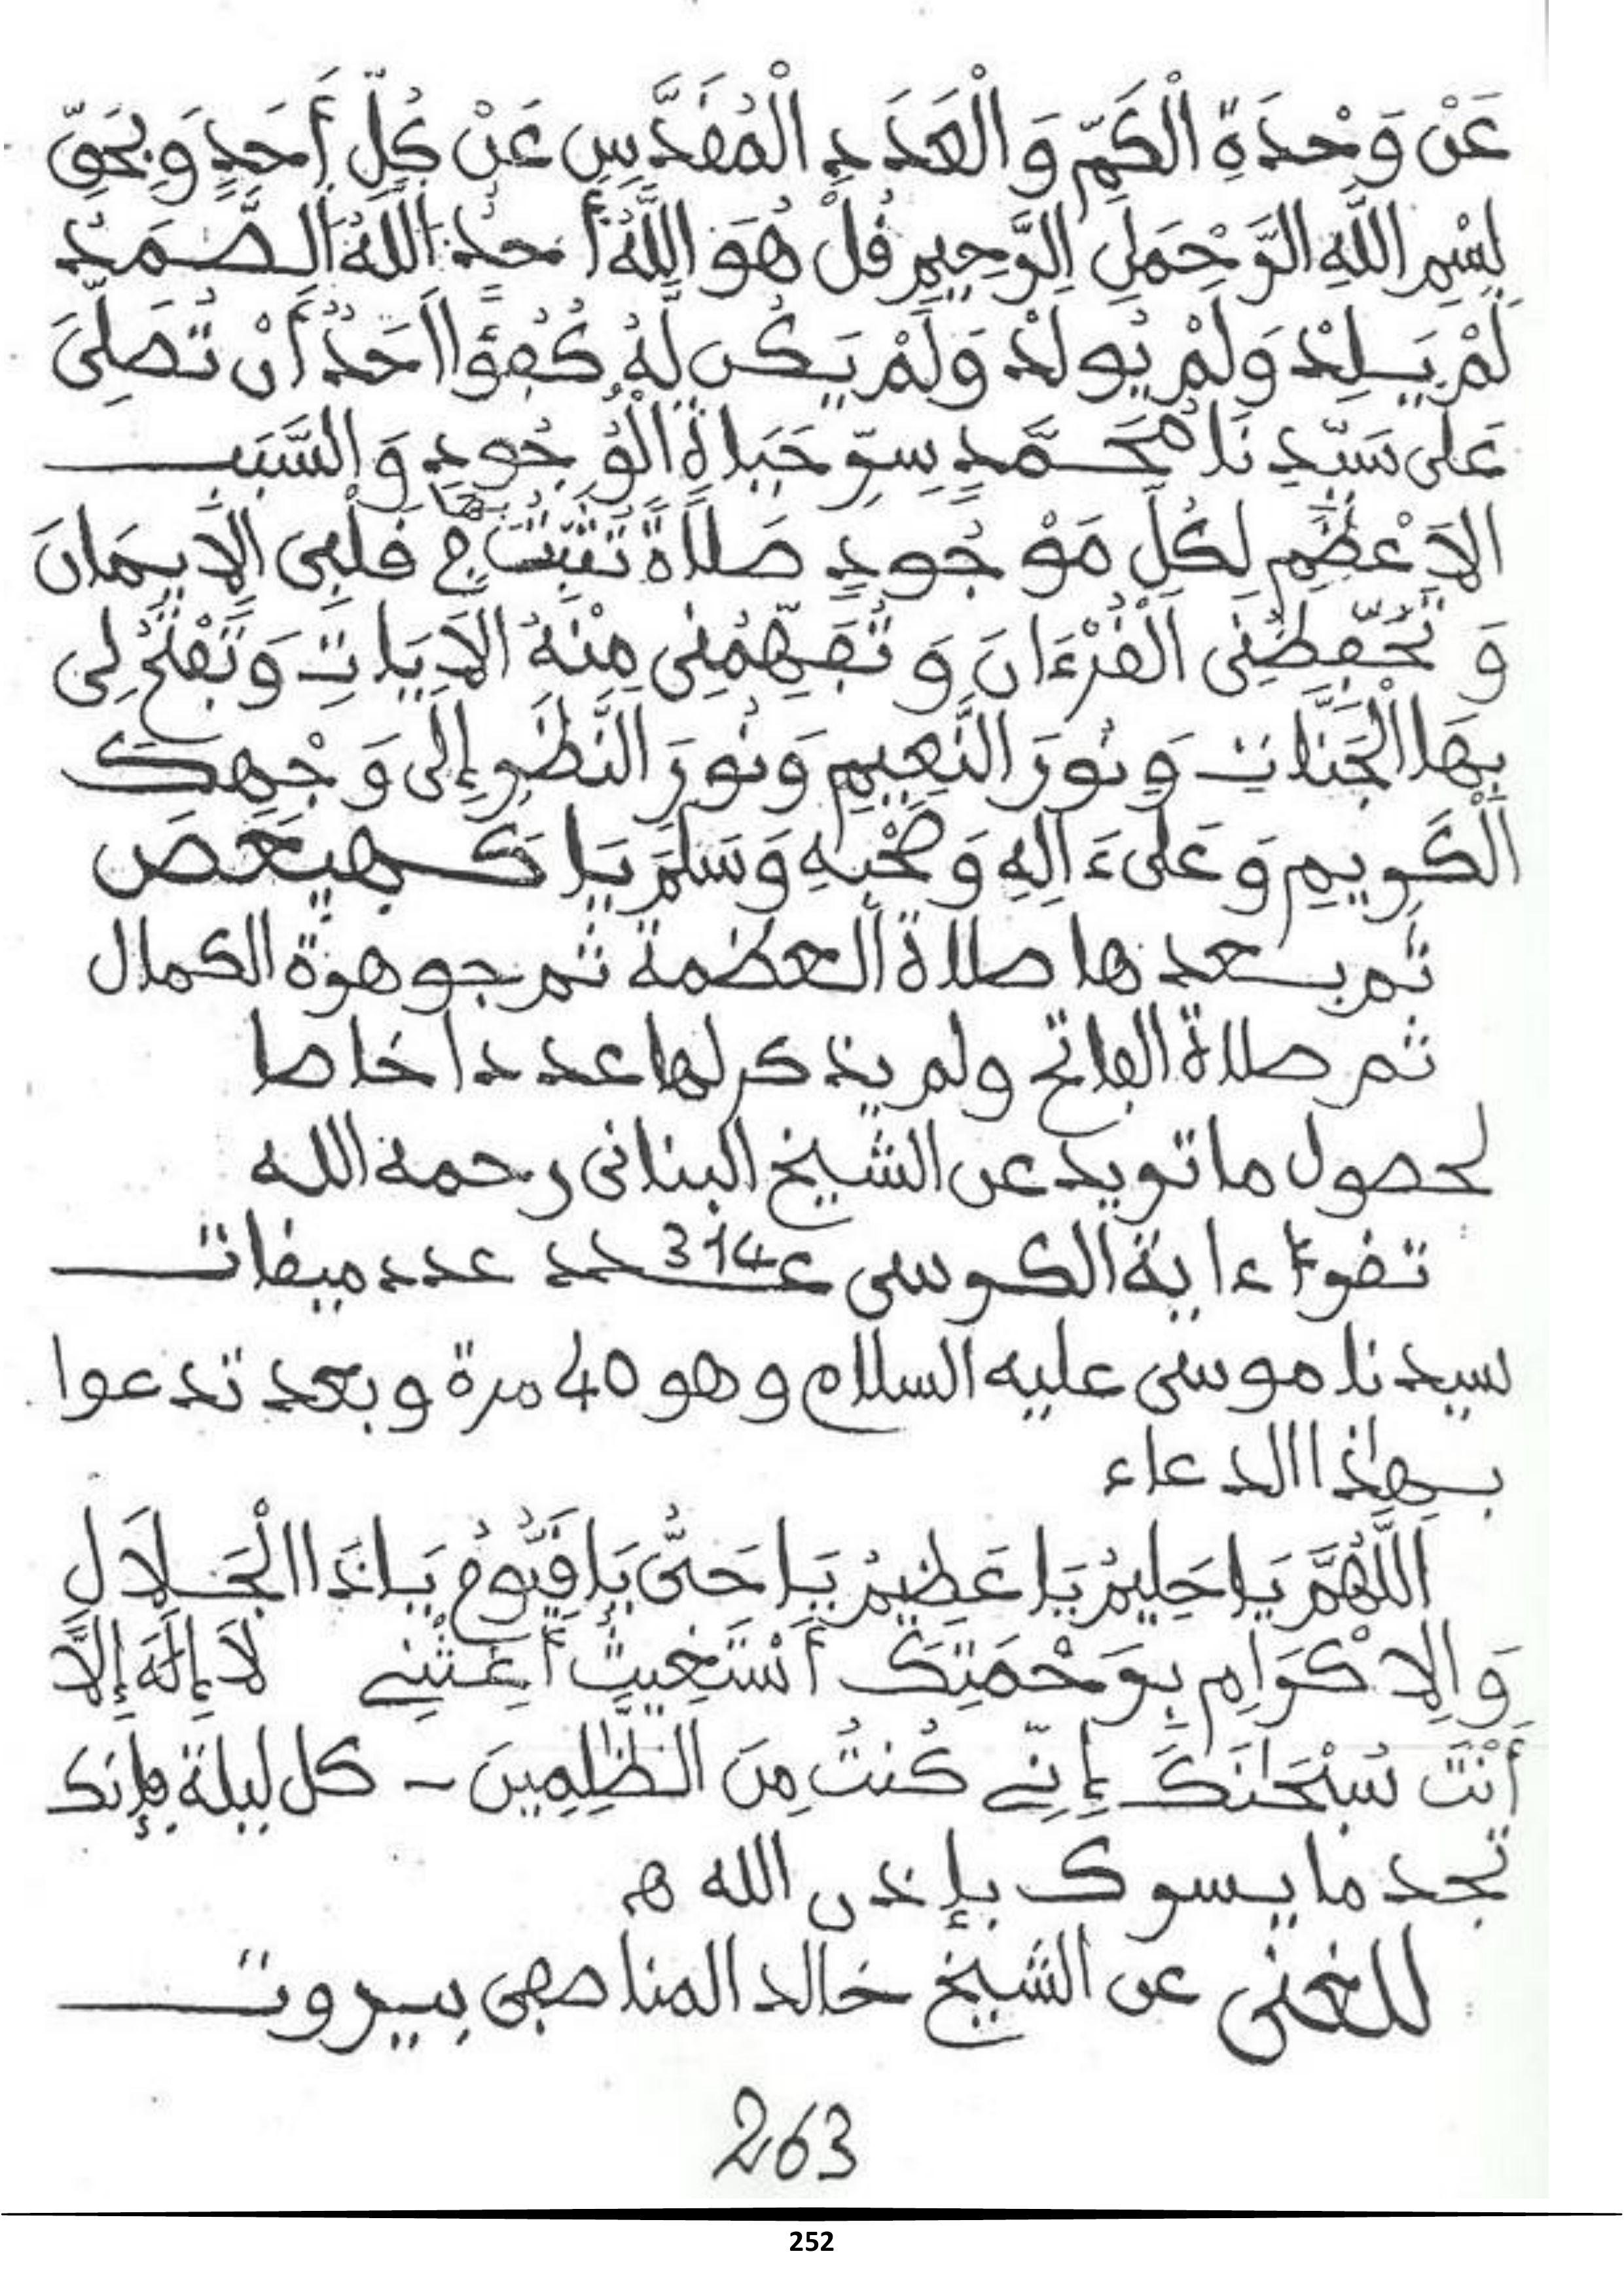 عَنْ وَحْدَةِ الْكَمِّ وَالْعَدَدِ الْمُقَدَّسِ عَنْ كُلِّ أَحَدٍ وَبِحَقِّ
بِسْمِ اللَّهِ الرَّحْمَنِ الرَّحِيمِ قُلْ هُوَ اللَّهُ أَحَدٌ اللَّهُ الصَّمَدُ
لَمْ يَلِدْ وَلَمْ يُولَدْ وَلَمْ يَكُن لَّهُ كُفُؤًا اَحَدٌ أَنْ تُصَلِّيَ
عَلَى سَيِّدِنَا مُحَمَّدٍ سِرِّ حَيَاةِ الْوُجُودِ وَالسَّبَبِ
الاَعْظَمِ لِكُلِّ مَوْجُودٍ صَلَاةً تُثَبِّتُ بِهَا فِي قَلْبِي الإِيمَانَ
وَتُحَفِّظُنِي الْقُرْءَانَ وَتُفَهِّمُنِي مِنْهُ الاَيَاتِ وَتَفْتَحُ لِي
بِهَا الْجَنَّاتِ وَنُورَ النَّعِيمِ وَنُورَ النَّظَرِ إِلَى وَجْهِكَ
الْكَرِيمِ وَعَلَى ءَالِهِ وَصَحْبِهِ وَسَلِّمْ يَا كَهيعص
ثم بعدها صلاة العظمة ثم جوهرة الكمال
ثم صلاة الفاتح ولم يذكر لها عددا خاصا
لحصول ما تريد عن الشيخ البناني رحمه الله
تقرأ ءاية الكرسي عدد 314 عدد ميقات
سيدنا موسى عليه السلام وهو 40 مرة وبعد تدعوا
بهذا الدعاء
اللَّهُمَّ يَا حَلِيمُ يَا عَظِيمُ يَا حَيُّ يَا قَيُّومُ يَا ذَا الْجَلَالِ
وَالإِكْرَامِ بِرَحْمَتِكَ أَسْتَغِيثُ أَغِثْنِي لاَ إِلَهَ إِلاَّ
أَنْتَ سُبْحَانَكَ إِنِّي كُنتُ مِنَ الظَّالِمِينَ - كل ليلة فإنك
تجد ما يسرك بإذن الله ه
للغنى عن الشيخ خالد المناصفي بيروت
263
252